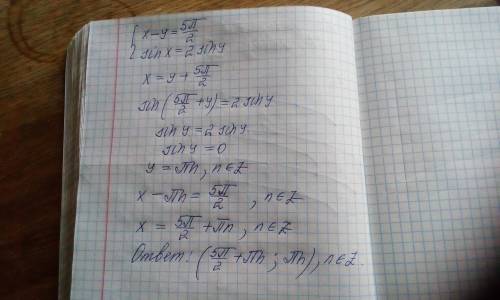 { x-y = 5π/2
{ sin x = 2 sin y
x = y + 5π/2
sin (5π/2 + y) = 2 sin y
sin y = 2 sin y
sin y = 0
y = πn, n∈Z
x - πn = 5π/2, n∈Z
x = 5π/2 + πn, n∈Z
Ответ: (5π/2 + πn; πn), n∈Z.